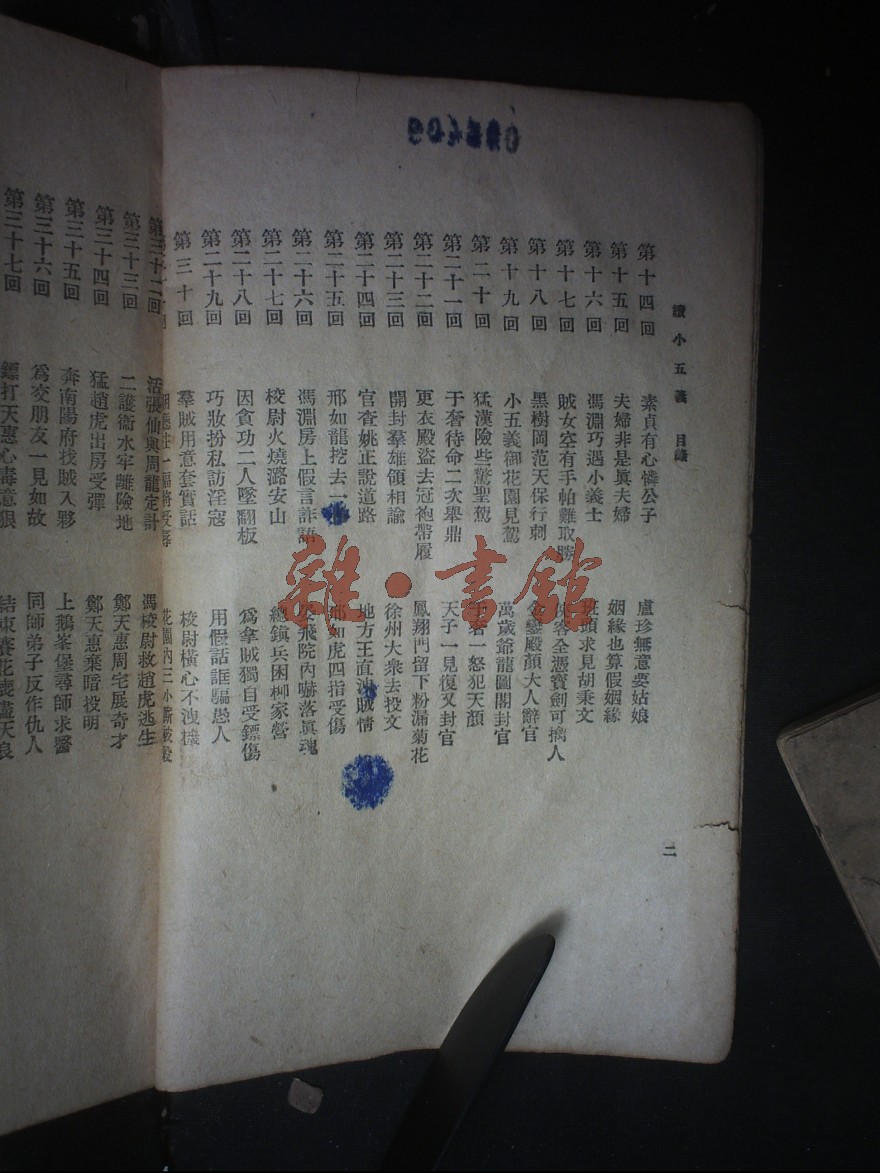 續小五義 目錄
第十四回 素貞有心憐公子 盧珍無意要姑娘
第十五回 夫婦非是眞夫婦 姻緣也算假姻緣
第十六回 馮淵巧遇小義士 班頭求見胡秉文
第十七回 賊女空有手帕難取勝 俠客全憑寶劍可擒人
第十八回 黑樹岡范天保行刺 金鑾殿顏大人辭官
第十九回 小五義御花園見駕 萬歲爺龍圖閣封官
第二十回 猛漢險些驚聖駕 于奢一怒犯天顏
第二十一回 于奢待命二次舉鼎 天子一見復又封官
第二十二回 更衣殿盜去冠袍帶履 鳳翔門留下粉漏菊花
第二十三回 開封羣雄領相諭 徐州大衆去投文
第二十四回 官查姚正說道路 地方王直洩賊情
第二十五回 邢如龍挖去一 邢如虎四指受傷
第二十六回 馮淵房上假言詐語 飛院內嚇落眞魂
第二十七回 校尉火燒潞安山 總鎭兵困柳家營
第二十八回 因貪功二人墜翻板 爲拿賊獨自受鏢傷
第二十九回 巧妝扮私訪淫寇 用假話誆騙愚人
第三十回 羣賊用意套實話 校尉橫心不洩機
花園內三小
第三十二回 活張仙與周龍定計 馮校尉救趙虎逃生
第三十三回 二護衛水牢離險地 鄭天惠周宅展奇才
第三十四回 猛趙虎出房受彈 鄭天惠棄暗投明
第三十五回 奔南陽府找賊入夥 上鵝峯堡尋師求醫
第三十六回 爲交朋友一見如故 同師弟子反作仇人
第三十七回 鏢打天惠心毒意狠 結束賽花喪盡天良
二
雜·書館